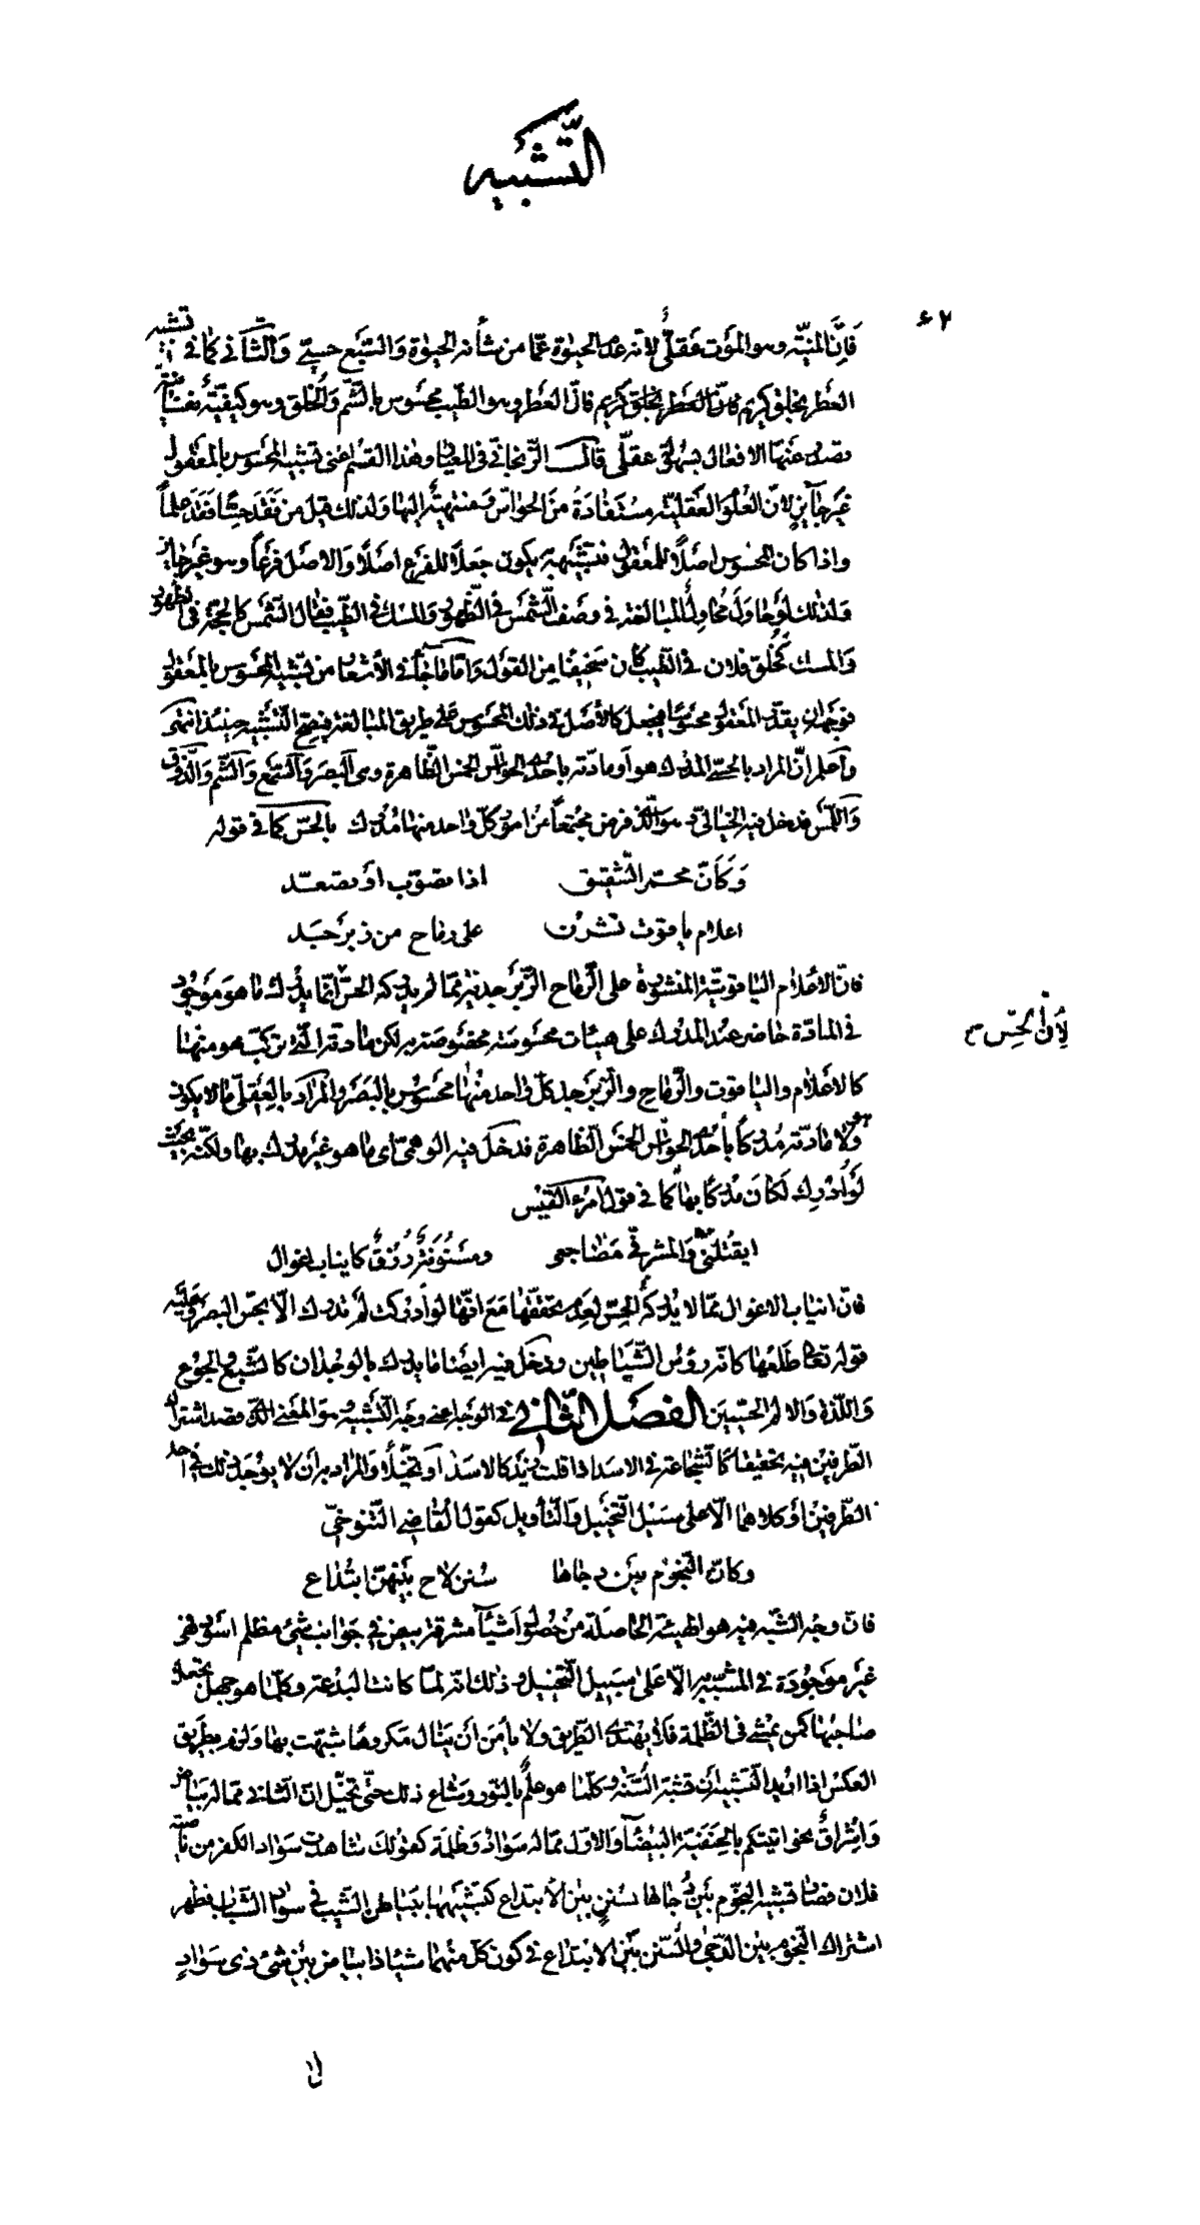 التَّشبيه
۶۲
فَإِنَّ المنيّة وهو المَوت عَقليٌّ لأنّه عدم الحيوة عمّا من شأنه الحيوة وَالسَّبَع حسيّ وَالثّاني كما في تشبيه
العَطر بخلق كريم فانّ العَطر وهو الطّيب محسوس بالشّم وَالخلق وهو كيفيّة نفسانيّة
يصدر عنها الافعال بسهولة عقلّى قال الزّنجانى فى المعيار وهٰذا القسم اعنى تشبيه المحسوس بالمعقول
غَير جآئزٍ لانّ العُلُوم العَقليّة مستَفادَةٌ منَ الحواسّ وَمنتهيَةٌ إليها ولذلك قيل من فَقَد حسًّا فقد علمًا
واذا كان المحسوس اصلًا للمعقول فتشبيهه به يكون جعلًا للفرع اصلًا والاصل فرعًا وهو غير جايز
ولذلك لو حاوَل محاولٌ المبالغة فى وصف الشّمس فى الظّهور والمسك فى الطّيب فقال الشّمس كالحجّة فى الظّهور
والمسك كخُلق فلان فى الطّيب كان سخيفًا من القول وامّا ما جآء فى الأشعار من تشبيه المحسوس بالمعقول
فوجهه ان يقدّر المعقول محسوسًا ويجعل كالأصل لذلك المحسوس على طريق المبالغة فيصحّ التّشبيه حينئذ انتهى
وآعلم انّ المراد بالحسّى المدرك هو أو مادّته باحدى الحواسّ الخمس الظّاهرة وهى البصر وَالسّمع وَالشّم وَالذّوق
وَاللّمس فدخل فيه الخيالى وهو الّذى فرض مجتمعًا من امور كلّ واحد منها مدرك بالحسّ كما فى قوله
وَكَأَنّ محمر الشّقيق اذا تصوّب أو تصعّد
اعلام ياقوت نشرن على رماح من زبرجد
فانّ الأعلام الياقوتيّة المنشورة على الرّماح الزّبرجديّة ممّا لم يدركه الحسّ انّما يدرك ما هو مَوجود
لِأنّ الحِسّ ح
فى المادّة حاضر عند المدرك على هيئات محسوسة مخصوصة به لكن مادّته الّتى تركّب هو منها
كالاعلام والياقوت والرّماح والزّبرجد كلّ واحد منها محسوس بالبصر والمراد بالعقلّى ما لا يكون
هو ولا مادّته مدركًا بأحدى الحواسّ الخمس الظّاهرة فدخل فيه الوهمّى اى ما هو غير مدرك بها ولكنّه بحيث
لَو أُدرِك لَكانَ مدركًا بها كما فى قول امرء القيس
ايقتلنى والمشرفىّ مضاجعى ومسنُونَةٌ زُرقٌ كانياب اغوال
فانّ انياب الاغوال ممّا لا يدركه الحسّ لعدم تحقّقها مع انّها لو أدركت لم تدرك الّا بحسّ البصر وعليه
قوله تعالى طلعها كانّه رؤس الشّياطين ودخل فيه ايضًا ما يدرك بالوجدان كالشّبع والجوع
واللّذة والالم الحسّيين الفصل الثّانى فى الوجه اعنى وجه التّشبيه وهو المعنى الّذى قصد اشتراك
الطّرفين فيه تحقيقًا كالشّجاعة فى الاسد اذا قلت زيد كالاسد أو تخيّلًا والمراد به أن لا يوجد ذلك فى احد
الطّرفين أو كلاهما الّا على سبيل التّخييل والتّأويل كقول القاضى التّنوخىّ
وكانّ النّجوم بين دجاها سُنن لاح بينهنّ ابتداع
فانّ وجه الشّبه فيه هو الهيئة الحاصلة من حصول أشيآء مشرقة بيض فى جوانب شىء مظلم اسود فهى
غير موجودة فى المشبّه به الّا على سبيل التّخييل وذلك انّه لمّا كانت البدعة وكلّما هو جهل يجعل
صاحبها كمن يمشى فى الظّلمة فلا يهتدى الطّريق ولا يأمن أن ينال مكروها شبّهت بها ولزم بطريق
العكس اذا اريد التّشبيه أن تشبّه السّنّة وكلّما هو علمٌ بالنّور وشاع ذلك حتّى تخيّل انّ الثّانى ممّا له بياض
وَاشراقٌ نحو اتيتكم بالحنفيّة البيضآء والاوّل ممّا له سوادٌ وظلمة كقولك شاهدت سواد الكفر من ناصية
فلان فصار تشبيه النّجوم بين دجاها بسُننٍ بين الابتداع كتشبيهها ببياض الشّيب فى سواد الشّباب فظهر
اشتراك النّجوم بين الدّجى والسّنن بين الابتداع فى كون كلّ منهما شيئًا ذا بياض بين شىء ذى سوادٍ